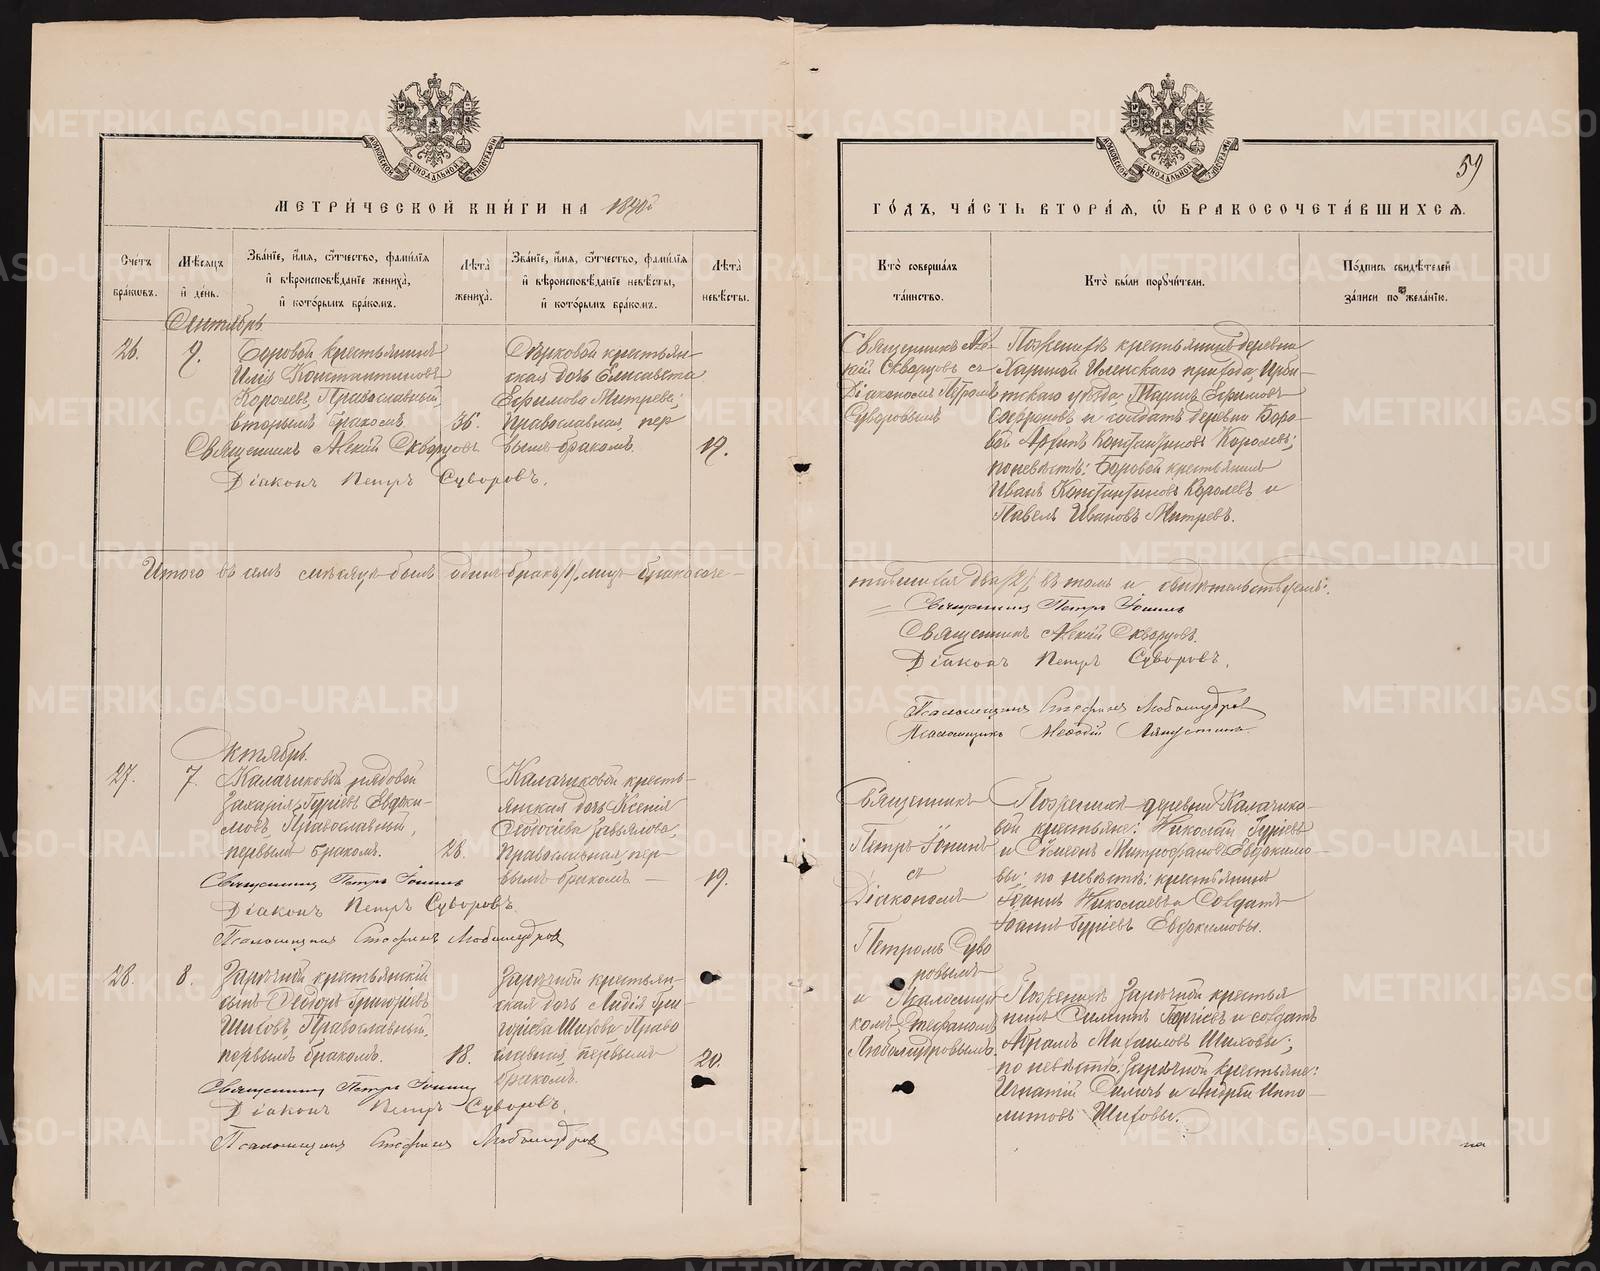 МЕТРИ́ЧЕСКОЙ КНИ́ГИ НА
Сче́тъ бра́ковъ.
Мѣ́сяцъ и҆ де́нь.
Зва́нїе, и҆́мя, ѻ҆́тчество, фами́лїя и҆ вѣроисповѣ́данїе жениха̀, и҆ кото́рымъ бра́комъ.
Лѣ́та жениха̀.
Зва́нїе, и҆́мя, ѻ҆́тчество, фами́лїя и҆ вѣроисповѣ́данїе невѣ́сты, и҆ кото́рымъ бра́комъ.
Лѣ́та невѣ́сты.
Сентябрь
26.
9.
Боровой крестьянинъ
Константиновъ
Королевъ, Православный,
вторымъ бракомъ
36.
крестьян-
ская дочь Елисавета
Ефимова
Православная, пер-
вымъ бракомъ.
19.
Священникъ Скворцовъ
Діаконъ Петръ Суворовъ.
Итого въ семъ месяце былъ одинъ бракъ /1/, лицъ бракосоче-
Октябрь.
27.
7.
Калачиковой рядовой
Захарія Гуріевъ Евдоки-
мовъ, Православный,
первымъ бракомъ.
28.
Калачиковой кресть-
янская дочь Ксенія
Завьялова,
Православная, пер-
вымъ бракомъ —
19.
Священникъ Петръ Іонинъ
Діаконъ Петръ Суворовъ
Псаломщикъ Стефанъ Любомудровъ
28.
8.
Зарѣчной крестьянскій
сынъ Ѳедоръ Григоріевъ
Шиховъ, Православный,
первымъ бракомъ.
18.
Зарѣчной крестьян-
ская дочь Лидія Гри-
горіева Шихова, Право-
славная, первымъ
бракомъ.
20.
Священникъ Петръ Іонинъ
Діаконъ Петръ Суворовъ.
Псаломщикъ Стефанъ Любомудровъ
59
ГО́ДЪ, ЧА́СТЬ ВТОРА́Я, Ѡ҆ БРАКОСОЧЕТА́ВШИХСЯ.
Кто̀ соверша́лъ та́инство.
Кто̀ бы́ли порꙋчи́тели.
По́дпись свидѣ́телей за́писи по жела́нїю.
Священникъ
Скворцовъ съ
Діакономъ Петромъ
Суворовымъ
По женихѣ крестьянинъ деревни
прихода, Ирби-
тскаго уѣзда,
и солдатъ деревни Боро-
вой Константиновъ Королевъ;
по невѣстѣ: Боровой крестьянинъ
Иванъ Константиновъ Королевъ и
Павелъ Ивановъ
тавшихся два /2/, въ томъ и свидѣтельствуемъ:
Священникъ Петръ Іонинъ
Священникъ Скворцовъ.
Діаконъ Петръ Суворовъ.
Псаломщикъ Стефанъ Любомудровъ
Псаломщикъ Меѳодій
Священникъ
Петръ Іонинъ
съ
Діакономъ
Петромъ Суво-
ровымъ
и Псаломщи-
комъ Стефаномъ
Любомудровымъ.
По женихѣ деревни Калачико-
вой крестьяне: Николай Гуріевъ
и Симеонъ Митрофановъ Евдокимо-
вы; по невѣстѣ: крестьянинъ
Іоаннъ Николаевъ и Солдатъ
Іоаннъ Гуріевъ Евдокимовы.
По женихѣ Зарѣчной крестья-
нинъ и солдатъ
Абрамъ Михаиловъ Шиховы;
по невѣстѣ: Зарѣчной крестьяне:
Игнатій и Андрей Иппо-
литовъ Шиховы.